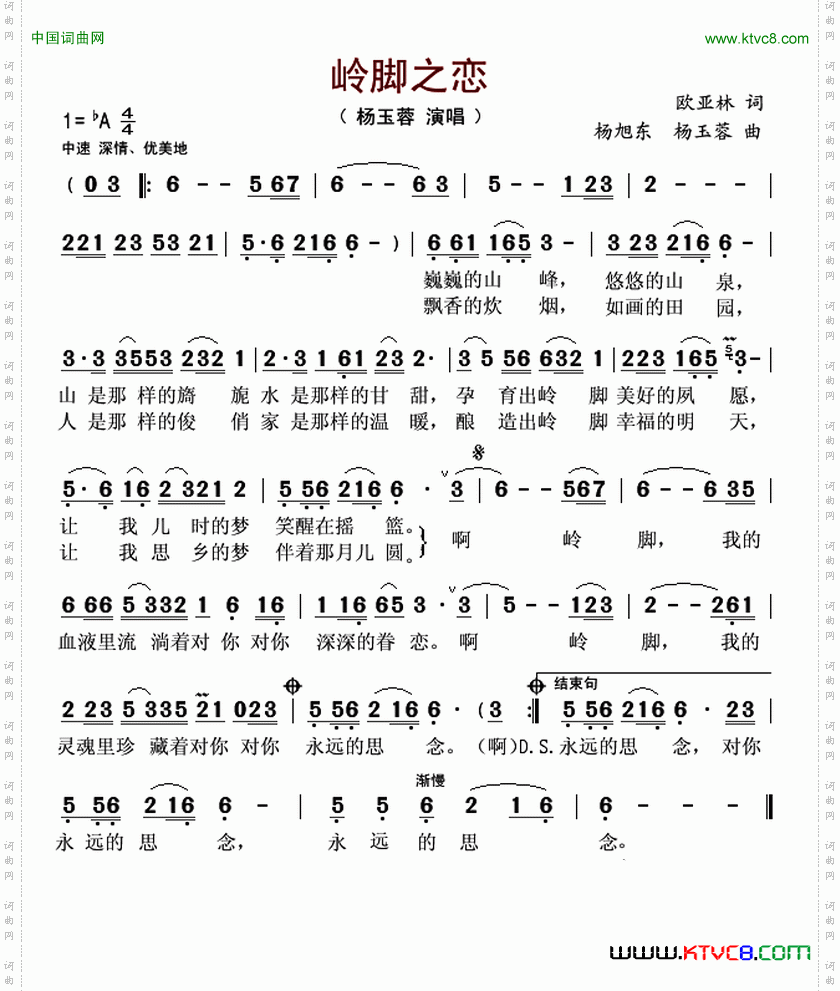 中国词曲网 www.ktvc8.com
岭脚之恋
（ 杨玉蓉 演唱 ）
欧亚林 词
1= ♭A 4/4
杨旭东 杨玉蓉 曲
中速 深情、优美地
( 0 3 ‖: 6 - - 5 6 7 | 6 - - 6 3 | 5 - - 1 2 3 | 2 - - - |
2 2 1 2 3 5 3 2 1 | 5 · 6 2 1 6 6 - ) | 6 6 1 1 6 5 3 - | 3 2 3 2 1 6 6 - |
巍巍的山 峰， 悠悠的山 泉，
飘香的炊 烟， 如画的田 园，
3 · 3 3 5 5 3 2 3 2 1 | 2 · 3 1 6 1 2 3 2 · | 3 5 5 6 6 3 2 1 | 2 2 3 1 6 5 5 3 - |
山 是那 样的旖 旎 水 是那样的甘 甜，孕 育出岭 脚 美好的夙 愿，
人 是那 样的俊 俏 家 是那样的温 暖，酿 造出岭 脚 幸福的明 天，
5 · 6 1 6 2 3 2 1 2 | 5 5 6 2 1 6 6 · 3 | 6 - - 5 6 7 | 6 - - 6 3 5 |
让 我 儿 时的梦 笑醒在摇 篮。 啊 岭 脚， 我的
让 我 思 乡的梦 伴着那月儿 圆。
6 6 6 5 3 3 2 1 6 1 6 | 1 1 6 6 5 3 · 3 | 5 - - 1 2 3 | 2 - - 2 6 1 |
血液里流 淌着对 你 对你 深深的眷 恋。啊 岭 脚， 我的
结束句
2 2 3 5 3 3 5 2 1 0 2 3 | 5 5 6 2 1 6 6 · ( 3 :‖ 5 5 6 2 1 6 6 · 2 3 |
灵魂里珍 藏着对你 对你 永远的思 念。(啊)D.S.永远的思 念，对你
渐慢
5 5 6 2 1 6 6 - | 5 5 6 2 1 6 | 6 - - - ‖
永 远的 思 念， 永 远 的 思 念。
www.KTVC8.COM